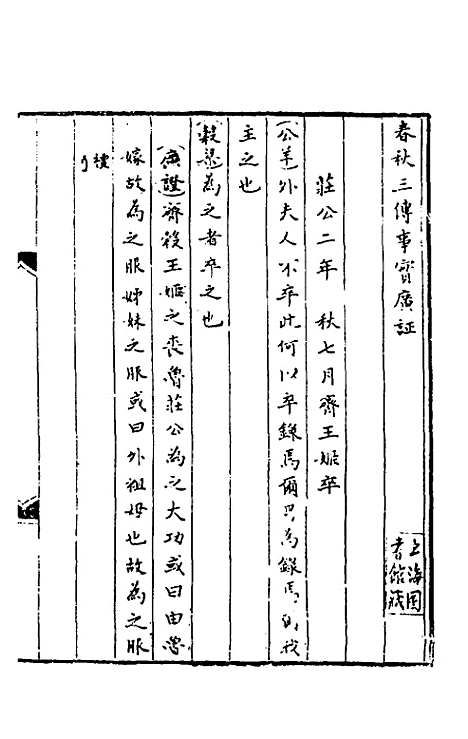 春秋三傳事實廣証
上海图
書館藏
莊公二年 秋七月齊王姬卒
公羊外夫人不卒此何以卒錄焉爾曷為錄焉我
主之也
穀梁為之者卒之也
廣證齊穀王姬之喪魯莊公為之大功或曰由魯
嫁故為之服姊妹之服或曰外祖母也故為之服
檀弓